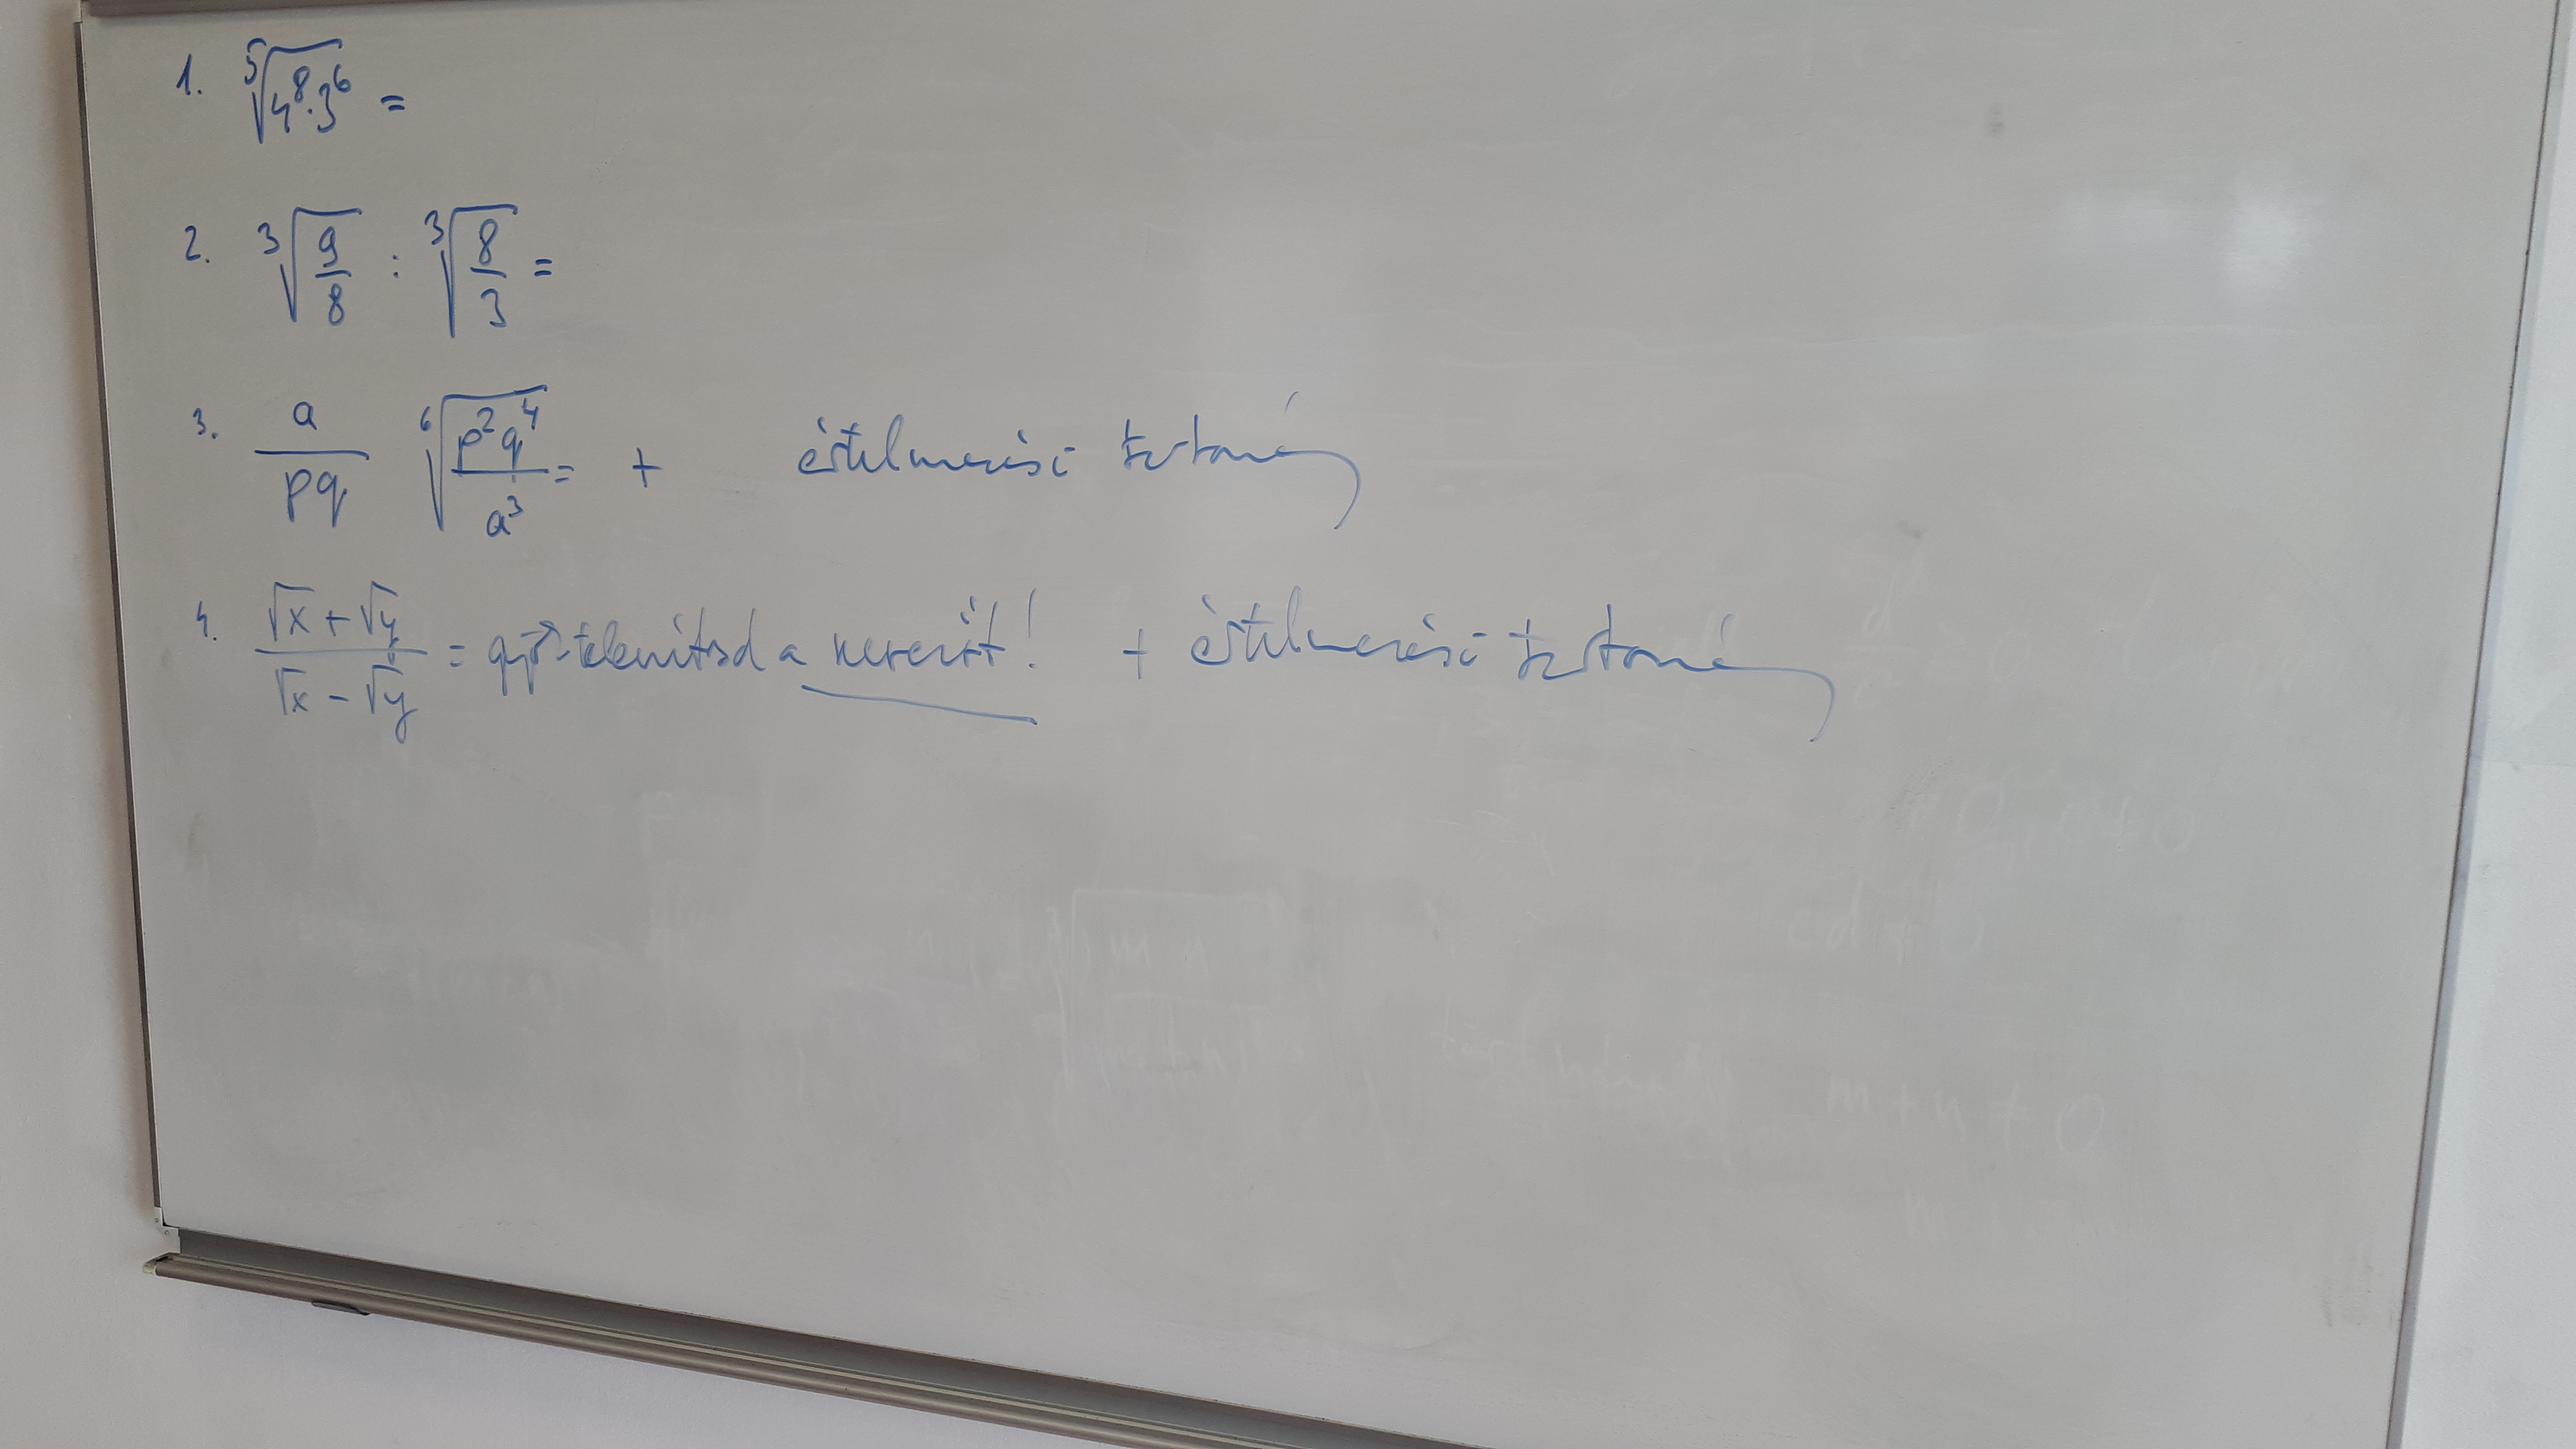 1. ⁵√(4⁸·3⁶) =
2. ³√(9/8) : ³√(8/3) =
3. a/(pq) ⁶√(p²q⁴/a³) = + értelmezési tartomány
4. (√x + √y)/(√x - √y) = gyöktelenítsd a nevezőt! + értelmezési tartomány